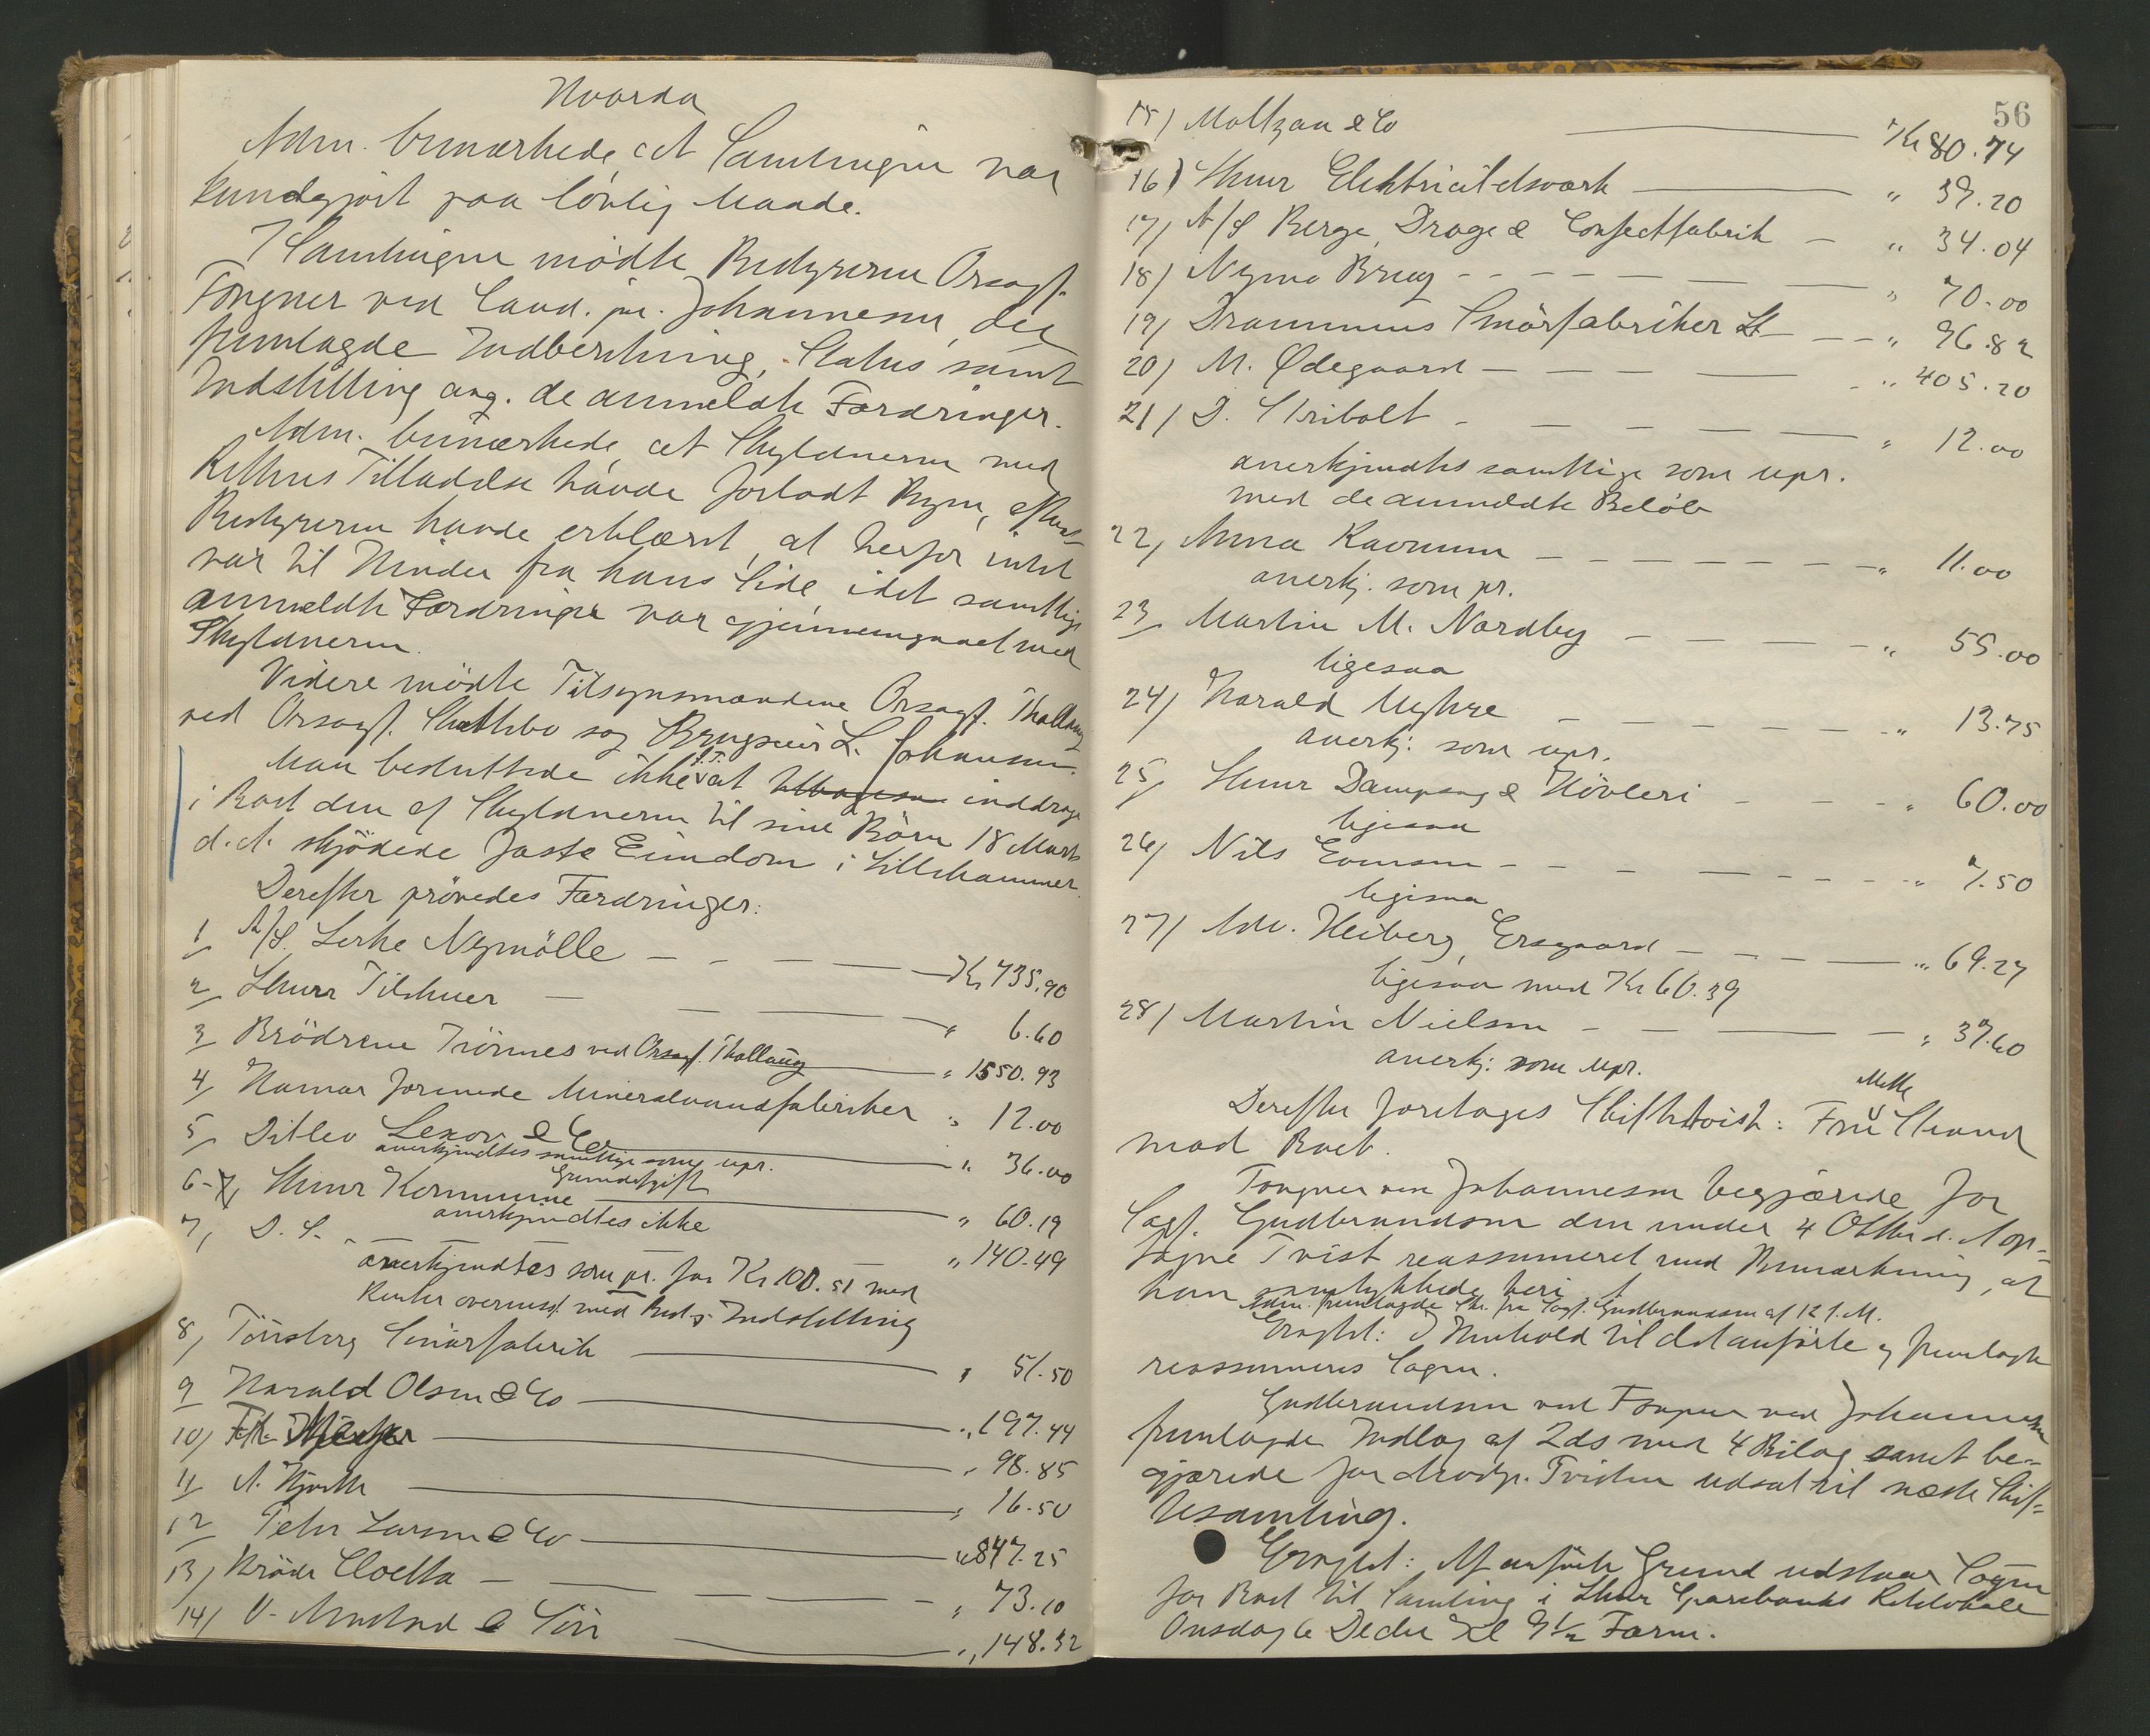 Hvorda
Adm. bemærkede, at Samlingen var
kundgjort paa lovlig Maade.
I Samlingen mødte Bestyreren Orsagf.
Fougner ved Cand. jur. Johannesen, der
fremlagde Indberetning, Status samt
Indstilling ang. de anmeldte Fordringer.
Adm. bemærkede, at Skyldneren med
Rettens Tilladelse havde forladt Byen, efterat
Bestyreren havde erklæret, at herfor intet
var til Hinder fra hans Side idet samtlige
anmeldte Fordringer var gjennemgaaet med
Skyldneren.
Videre mødte Tilsynsmændene Orsagf. Thallaug
ved Orsagf. Sættebo og Brugseier L. Johansen.
Man besluttede ikke f.T. at inddrage
i Boet den af Skyldneren til sine Børn 18 Marts
d.A. skjødede faste Eiendom i Lillehammer.
Derefter prøvedes Fordringer:
1 A/S. Lerke Nymølle — Kr 735.90
2 Lhmr Tilskuer — " 6.60
3 Brødrene Trønnes ved Orsagf. Thallaug " 1550.93
4 Hamar forenede Mineralvandfabriker " 12.00
5 Ditlev Lexow & Co — " 36.00
anerkjendtes samtlige som upr.
Grundafgift
6-7, Lhmr Kommune — " 60.19
anerkjendtes ikke
7, D. S. — " 140.49
anerkjendtes som pr. for Kr 100.51 med
Renter overensst. med Best.s Indstilling
8, Tönsberg Smørfabrik — " 51.50
9 Harald Olsen & Co — " 197.44
10) Fr. — " 98.85
11 A. Hjorth — " 16.50
12 Peter Larsen & Co — " 847.25
13) Brødr Cloetta — " 73.10
14) O. Mustad & Søn — " 148.32
56
15) Moltzau & Co — Kr 80.74
16) Lhmr Elektricitetsværk — " 39.20
17) A/S Berge, Drage & Confectfabrik — " 34.04
18) Nymo Brug — " 70.00
19) Drammens Smørfabriker Lt — " 96.82
20) M. Ødegaard — " 405.20
21) D. Stribolt — " 12.00
anerkjendtes samtlige som upr.
med de anmeldte Beløb
22, Anna Ravnum — " 11.00
anerkj. som pr.
23 Martin M. Nordby — " 55.00
ligesaa
24) Harald Myhre — " 13.75
anerkj. som upr.
25 Lhmr Dampsag & Høvleri — " 60.00
ligesaa
26) Nils Evensen — " 7.50
ligesaa
27) Adv. Heiberg, Ersgaard — " 69.27
ligesaa med Kr 60.39
28) Martin Nielsen — " 37.60
anerkj. som upr.
Mette
Derefter foretages Skiftetvist: Fru Strand
mod Boet.
Fougner ved Johannesen begjærede for
Sagf. Gudbrandsen den under 4 Oktbr d. A op-
tagne Tvist reassumeret med Bemærkning, at
han samtykkede heri
Adm. fremlagde Skr. fra Sagf. Gudbrandsen af 12 f.M.
Eragtet: I Henhold til det anførte og fremlagte
reassumeres Sagen.
Gudbrandsen ved Fougner ved Johannesen
fremlagde Indlæg af 2ds med 4 Bilag samt be-
gjærede for Modp. Tvisten udsat til næste Skif-
tesamling.
Eragtet: Af anførte Grund udstaar Sagen
for Boet til Samling i Lhmr Sparebanks Retslokale
Onsdag 6 Decbr Kl 9½ Form.